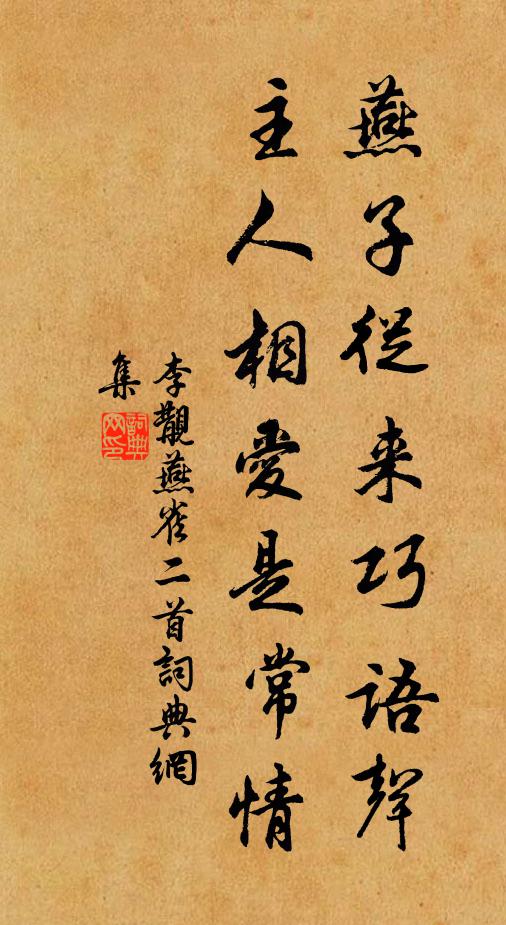 燕子從来巧語聲
主人相愛是常情
李覯燕雀二首詞典網
集
詞典
网印